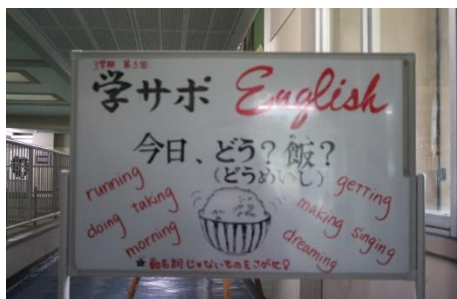 3学期 第5回
学サポ English
今日、どう？飯？
(どうめいし)
running
doing
taking
morning
getting
making
singing
dreaming
★動名詞じゃないものをさがせ!